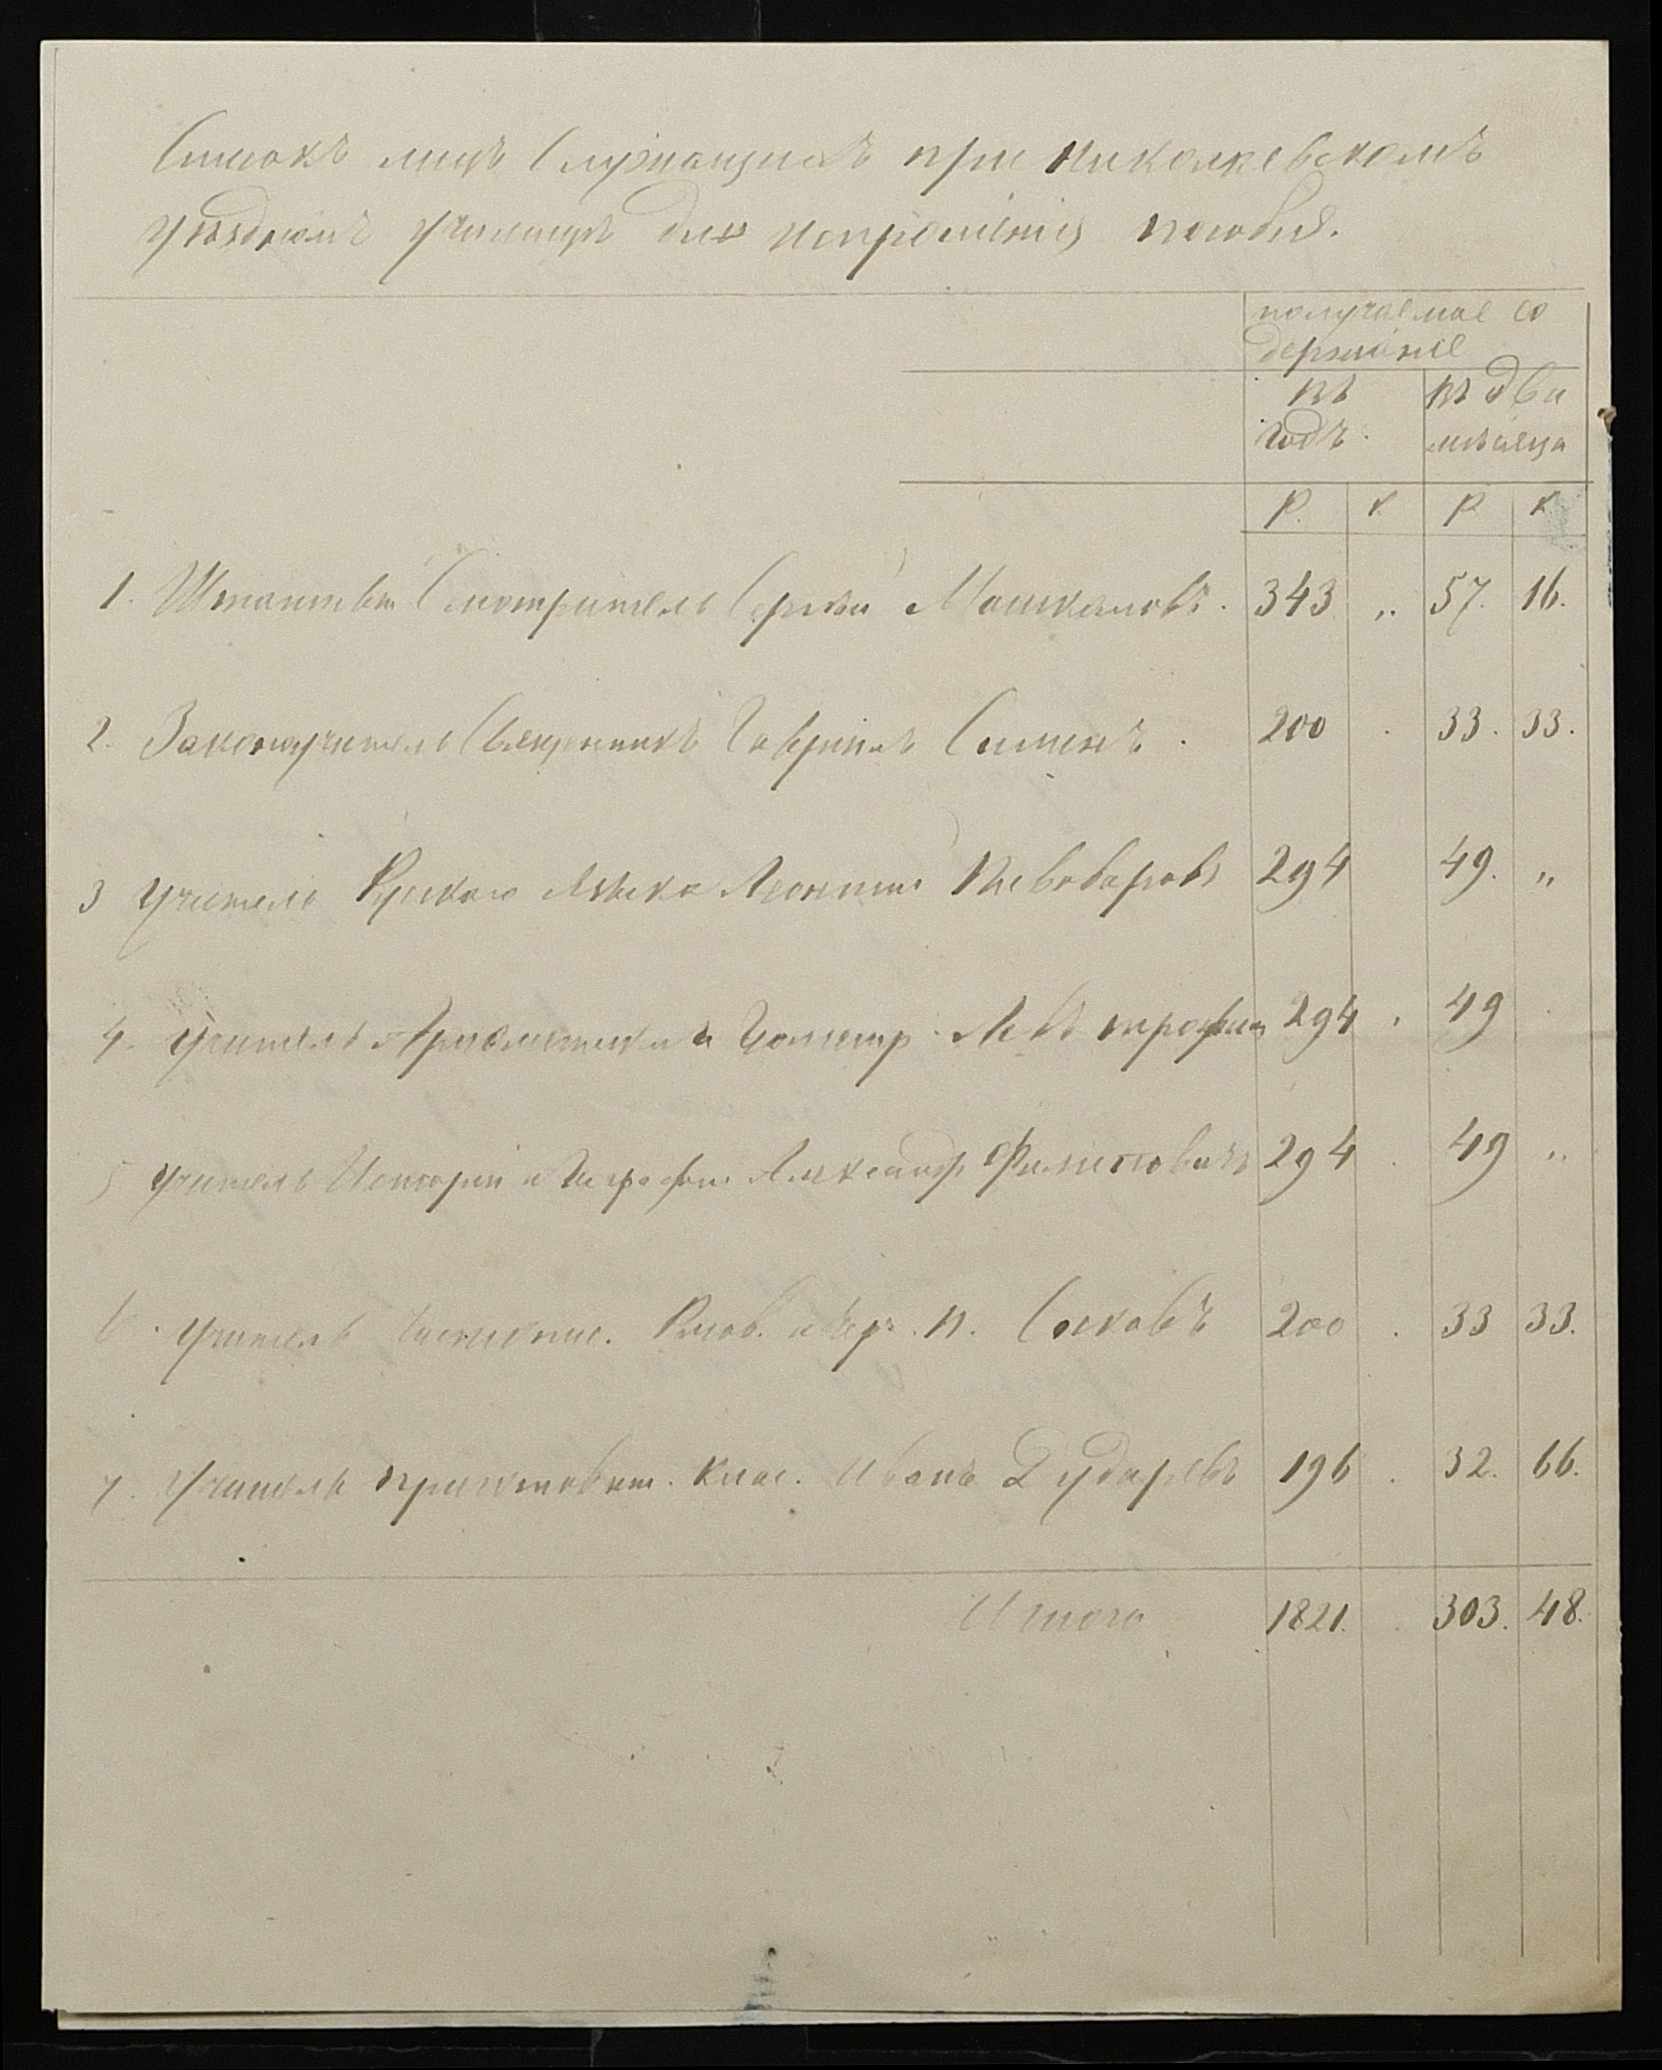 Списокъ лицъ Служащихъ при Николаевскомъ
Уѣздномъ Училищѣ для испрошенія пособія.
получаемое со
держаніе
въ въ два
годъ. мѣсяца
Р. К. Р К
1. Штатный Смотритель Сергѣй Машкановъ. 343 „ 57. 16.
2. Законоучитель Священникъ Гавріилъ Симинъ. 200 . 33. 33.
3 Учитель Рускаго Языка Леонтій Пивоваровъ 294 49. „
4. Учитель Ариѳметики и Геометр. Левъ 294 . 49
5 Учитель Исторіи и Географіи Александр Филиповичъ 294 . 49 „
6. Учитель Чистопис. Рисов. и Черч. П. Сысковъ 200 . 33 33.
7. Учитель приготовит. клас. Иванъ Дударевъ 196 . 32. 66.
Итого 1821. 303. 48.